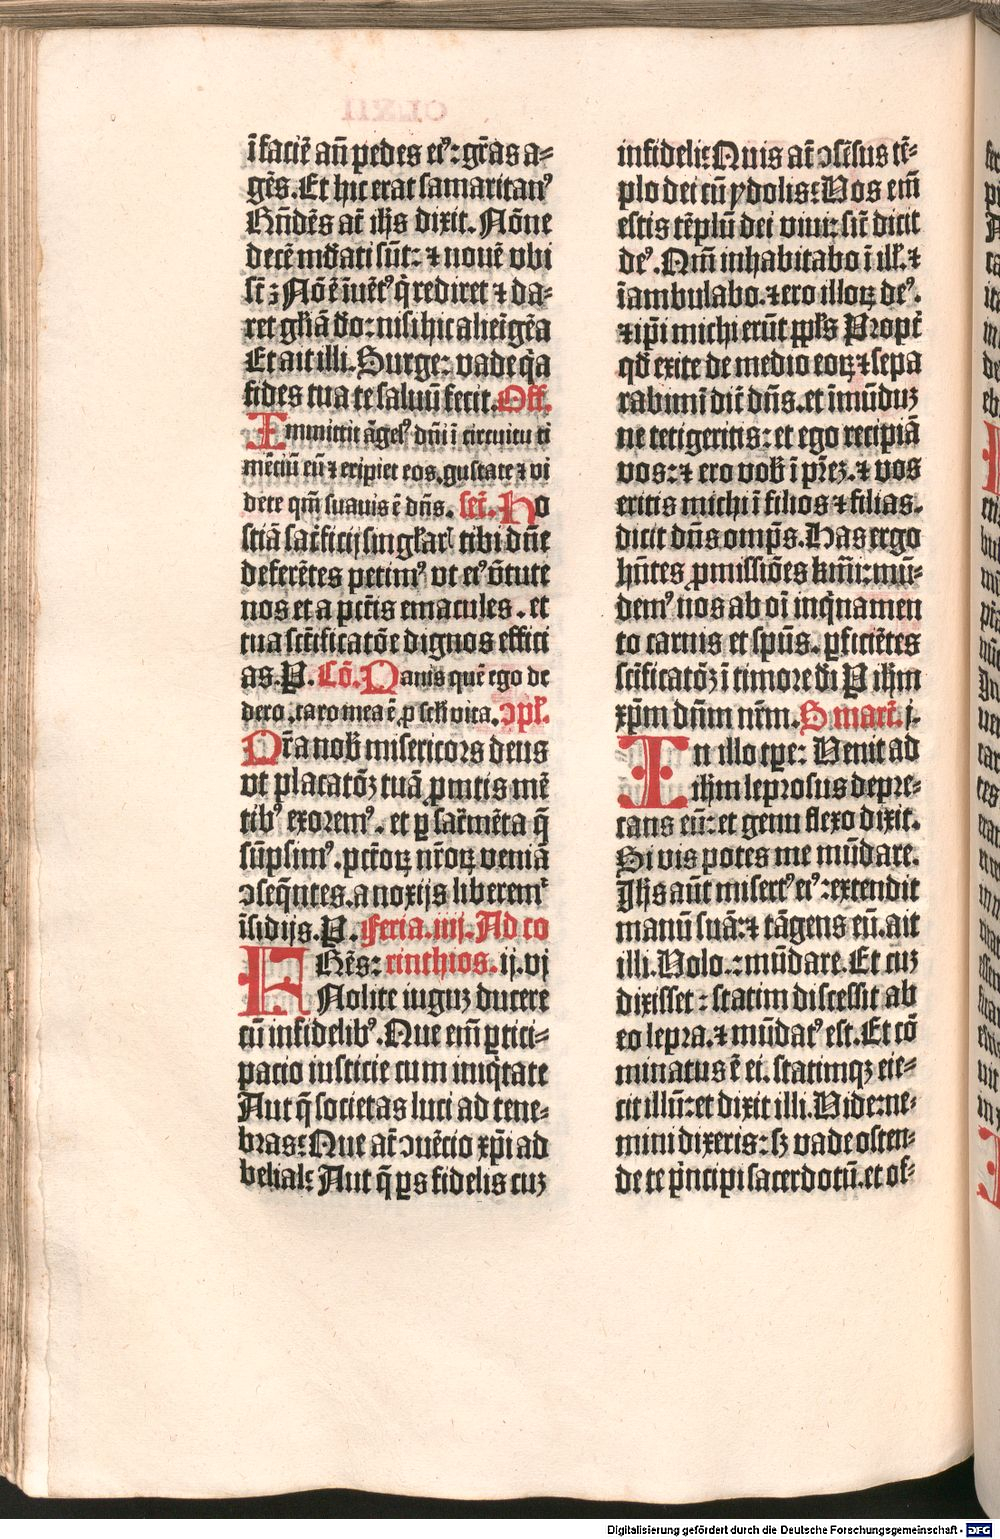 ī faciē añ pedes eiꝰ: gr̄as a⸗
gēs. Et hic erat samaritanꝰ
Rn̄dēs at̄ ih̄s dixit. Nōne
decē mūdati sūt: ⁊ nouē vbi
st̄? Nō ē īuētꝰ q̇ rediret ⁊ da⸗
ret gl̄iā deo: nisi hic alienīgēa
Et ait illi. Surge: vade q̇a
fides tua te saluū fecit. Off.
Immittit āgelꝰ dn̄i ī circuitu ti
mēciū eū ⁊ eripiet eos. gustate ⁊ vi
dete qm̄ suauis ē dn̄s. sec̄. Ho
stiā sac̄ficij singl̄ar̄ tibi dn̄e
deferētes petimꝰ vt eiꝰ v̄tute
nos et a pctīs emacules. et
tua scīficatōe dignos effici
as. P. Cō. Panis quē ego de
dero. caro mea ē ꝓ scl̄i vita. ꝯpl̄.
Pr̄a nob̄ misericors deus
vt placatōꝫ tuā ꝓmtis mē
tibꝰ exoremꝰ. et ꝑ sac̄mēta q̄
sūpsimꝰ. pctōꝝ nr̄oꝝ veniā
ꝯseq̄ntes. a noxijs liberemᷣ
īsidijs. P. Feria. iiij. Ad co
FRēs: rinthios. ij. vj
Nolite iuguꝫ ducere
cū infidelibꝰ. Que em̄ ꝑtici⸗
pacio iusticie cum iniq̇tate
Aut q̄ societas luci ad tene⸗
bras? Que at̄ ꝯuēcio xp̄i ad
belial? Aut q̄ ꝑs fideliscuꝫ
infideli? Quis at̄ ꝯsēsus tē⸗
plo dei cū ydolis? Vos em̄
estis tēplū dei viui: sic̄ dicit
deꝰ. Qm̄ inhabitabo ī ill̄. ⁊
īambulabo. ⁊ ero illoꝝ deꝰ.
⁊ ip̄i michi erūt ppl̄s Propt̄
qd̄ exite de medio eoꝝ ⁊ sepa
rabimī dic̄ dn̄s. et īmūduꝫ
ne tetigeritis: et ego recipiā
vos: ⁊ ero vob̄ ī pr̄eꝫ. ⁊ vos
eritis michi ī filios ⁊ filias.
dicit dn̄s omp̄s. Has ergo
hn̄tes ꝓmissiōes kmi: mū⸗
demꝰ nos ab oī inq̇namen
to carnis et spūs. ꝑficiētes
scīficatōꝫ ī timore dī P ih̄m
xp̄m dn̄m nr̄m. S marc̄. j.
In illo tpe: Venit ad
ih̄m leprosus depre⸗
cans eū: et genu flexo dixit.
Si vis potes me mūdare.
Ih̄s aūt misertꝰ eiꝰ: extendit
manū suā: ⁊ tāgens eū. ait
illi. Volo: mūdare. Et cuꝫ
dixisset: statim discessit ab
eo lepra. ⁊ mūdatꝰ est. Et cō
minatus ē ei. statimqꝫ eie⸗
cit illū: et dixit illi. Vide: ne⸗
mini dixeris: sꝫ vade osten⸗
de te pͥncipi sacerdotū. et of⸗
Digitalisierung gefördert durch die Deutsche Forschungsgemeinschaft - DFG